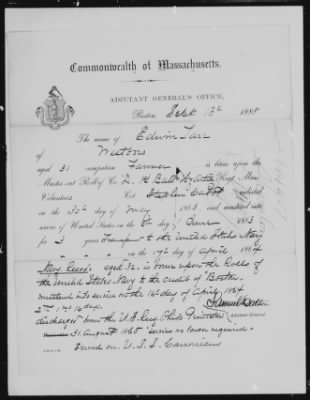 Commonwealth of Massachusetts.
ADJUTANT GENERAL'S OFFICE,
Boston, Sept 12th 1888
The name of Edwin Tarr
of Westboro
aged 31, occupation Farmer is borne upon the
Muster-out Roll of Co. H Batt Regt. Mass.
Volunteers Col. enlisted
on the day of May 1863 and mustered into
service of United States on the 8th day of June 1863
for 3 years Transferred to the United States Navy
on the day of April 1864
Navy Record, aged 32, is borne upon the Rolls of
the United States Navy to the credit of Boston
mustered into service on the 16th day of April 1864
2 yrs 1 16 days. Samuel Dalton
discharged from the U.S. Princeton Adjutant General.
31 August 1865 Series no bonus required
Served on U.S.S.